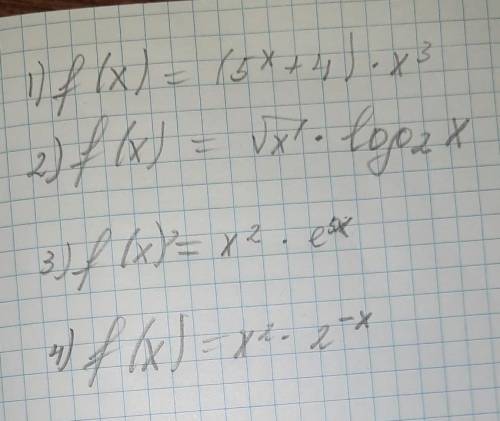 1) f(x) = (5^x + 4) · x^3
2) f(x) = √x · log₂ x
3) f(x) = x^2 · e^5x
4) f(x) = x^2 · 2^-x